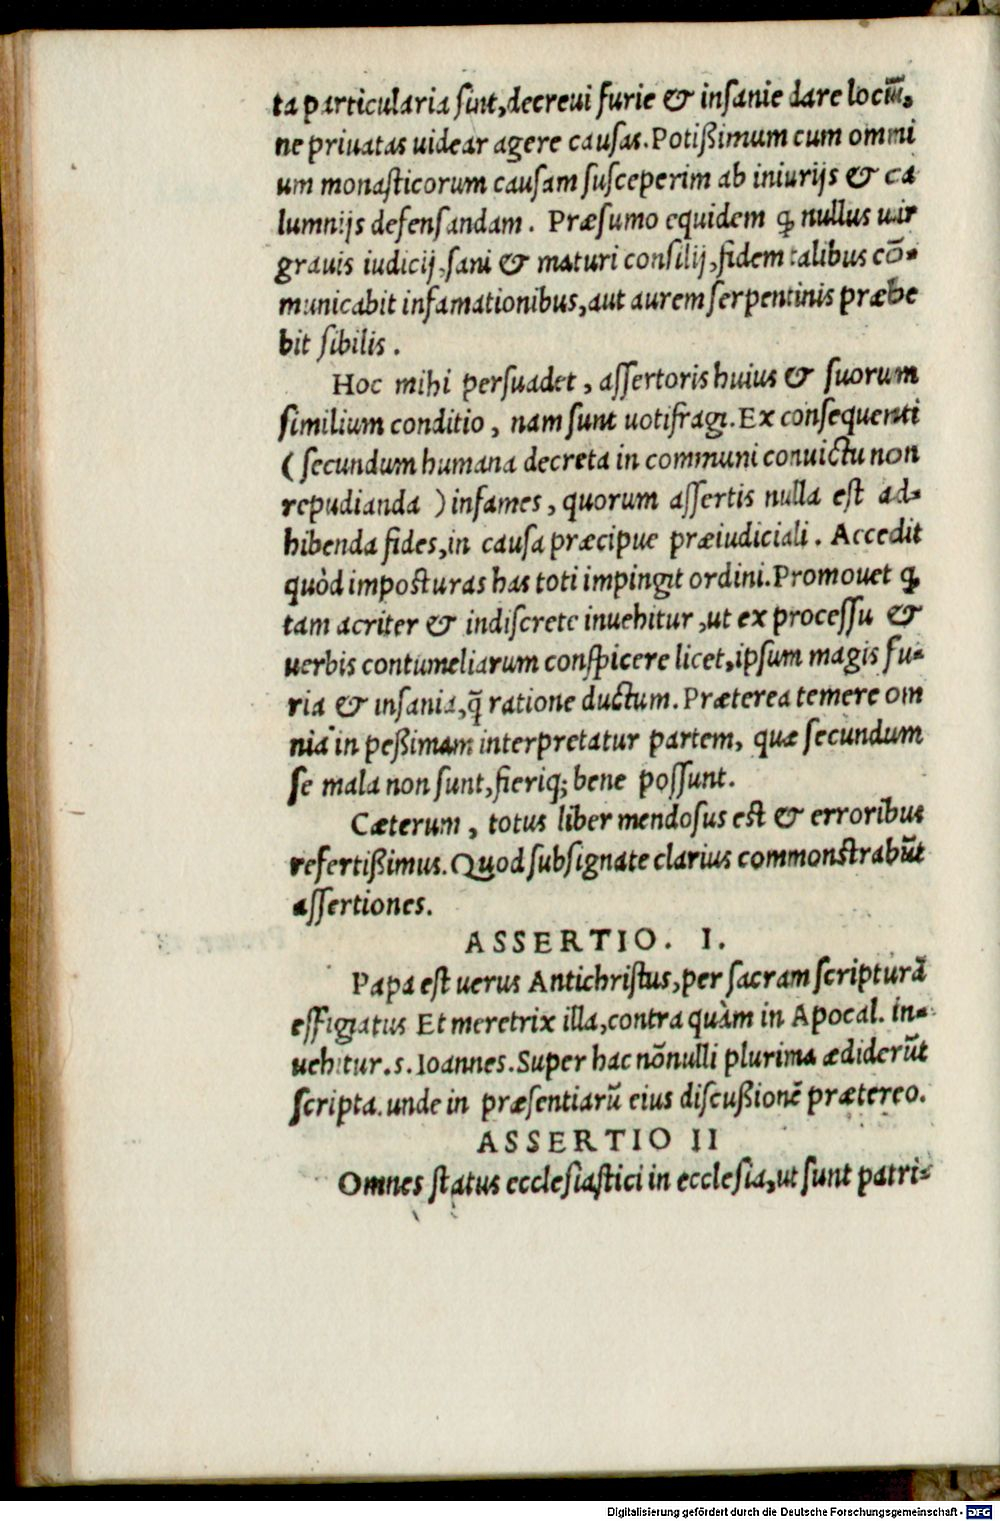 ta particularia ſint,decreui furie & inſanie dare locū,
ne priuatas uidear agere cauſas.Potißimum cum omni
um monaſticorum cauſam ſuſceperim ab iniurijs & ca
lumnijs defenſandam . Præſumo equidem ꝙ nullus uir
grauis iudicij,ſani & maturi conſilij,fidem talibus cō-
municabit infamationibus,aut aurem ſerpentinis præbe
bit ſibilis .
Hoc mihi perſuadet , aſſertoris huius & ſuorum
ſimilium conditio , nam ſunt uotifragi.Ex conſequenti
( ſecundum humana decreta in communi conuictu non
repudianda ) infames , quorum aſſertis nulla est ad-
hibenda fides,in cauſa præcipue præiudiciali . Accedit
quòd imposturas has toti impingit ordini.Promouet ꝙ
tam acriter & indiſcrete inuehitur ,ut ex proceſſu &
uerbis contumeliarum conſpicere licet,ipſum magis fu-
ria & inſania,q̄ ratione ductum.Præterea temere om
nia in peßimam interpretatur partem, quæ ſecundum
ſe mala non ſunt,fieriq; bene poſſunt.
Cæterum , totus liber mendoſus est & erroribus
refertißimus.Quod ſubſignate clarius commonstrabūt
aſſertiones.
ASSERTIO. I.
Papa est uerus Antichriſtus,per ſacram ſcripturā
effigiatus Et meretrix illa,contra quàm in Apocal. in-
uehitur.s.Ioannes.Super hac nōnulli plurima ædiderūt
ſcripta.unde in præſentiarū eius diſcußionē prætereo.
ASSERTIO II
Omnes ſtatus eccleſiaſtici in eccleſia,ut ſunt patri-
Digitalisierung gefördert durch die Deutsche Forschungsgemeinschaft - DFG